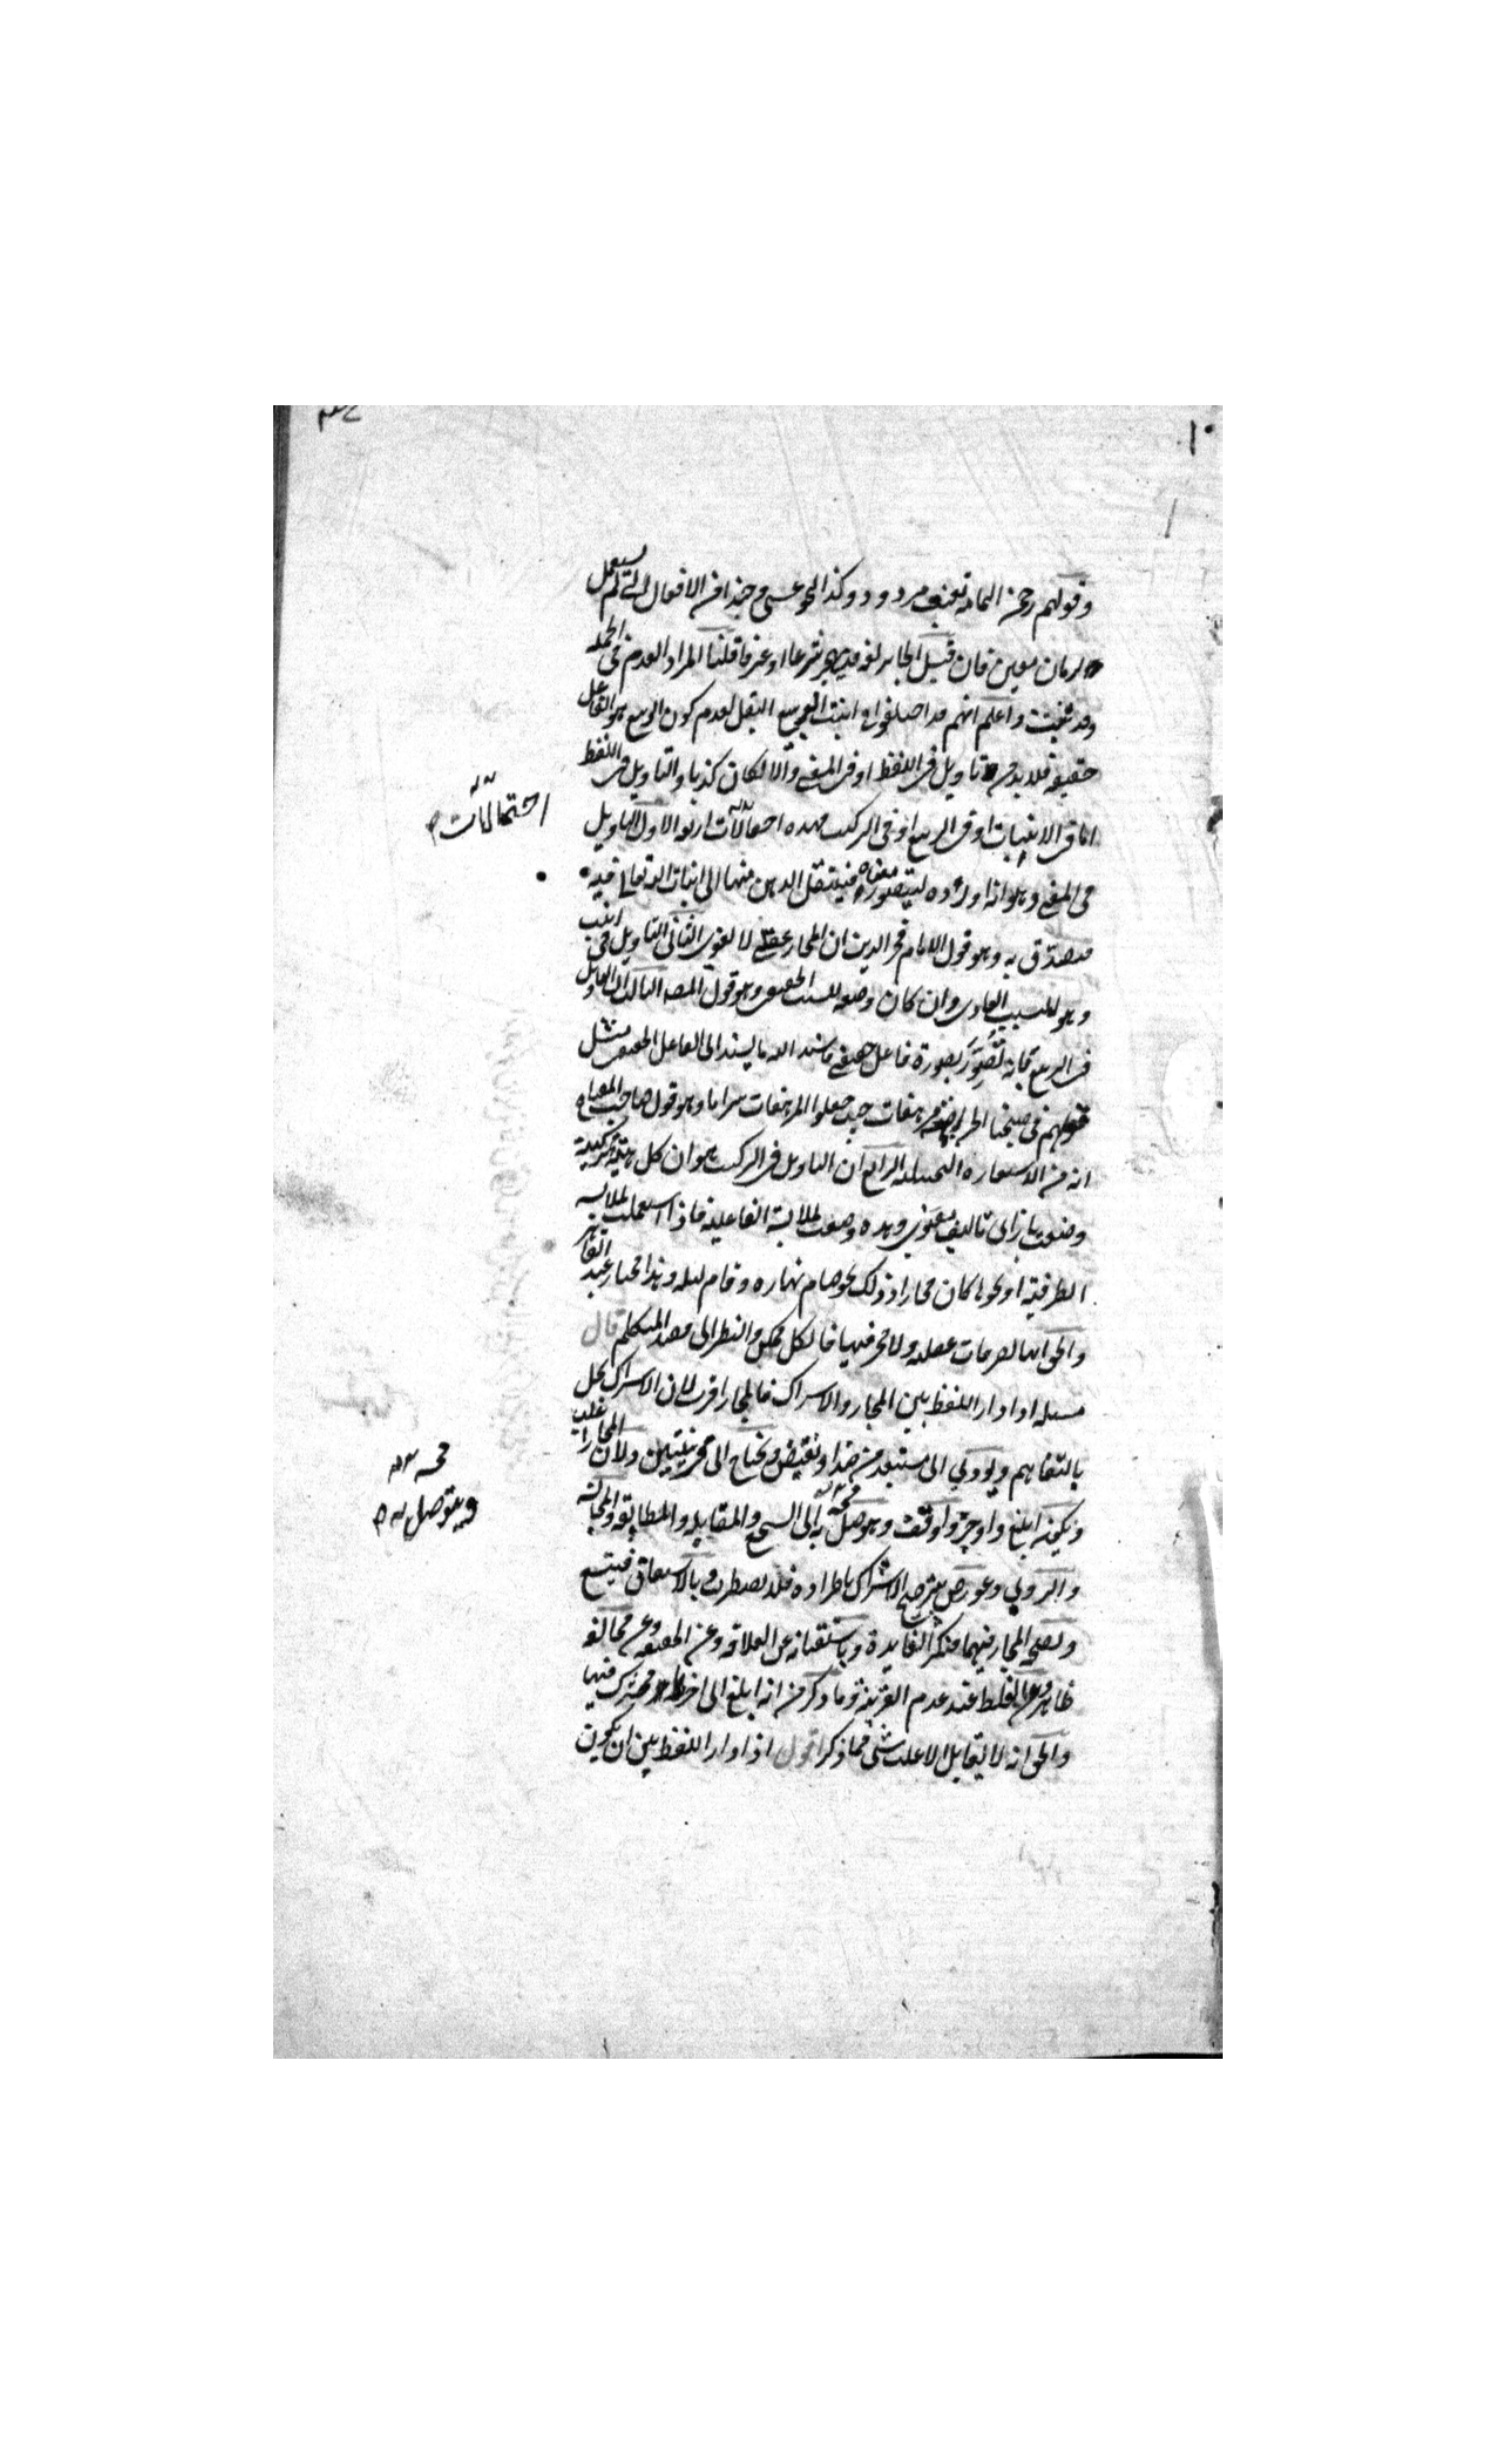 وقولهم رحمن اليمامة تعنت مردود وكذا نحو عسى وحبذا من الافعال التي لم يستعمل
لزمان معين فان قيل لغة فيجئ شرعا او عرفا قلنا المراد العدم في الجمله
وقد ثبت واعلم انهم قد اختلفوا في انبت الربيع البقل لعدم كون الربيع هو الفاعل
حقيقة فلا بد من تاويل في اللفظ او في المعنى والا لكان كذبا والتاويل في اللفظ
اما في الانبات او في الربيع او في التركيب فهذه احتمالات اربعة الاول التاويل
في المعنى وهو انه اورده ليتصور معناه فينتقل الذهن منها الى انبات الله تعالى فيه
فيصدق به وهو قول الامام فخر الدين ان المجاز عقلي لا لغوي الثاني التاويل في انبت
وهو للسبب العادي وان كان وضعه للسبب الحقيقي وهو قول المصنف الثالث ان التاويل
في الربيع فانه تصور بصورة فاعل حقيقي فاسند اليه ما يسند الى الفاعل الحقيقي مثل
قولهم في صبحنا الخزرجية مرهفات حيث جعلوا المرهفات وهو قول صاحب المفتاح
انه من الاستعارة التخييلية الرابع ان التاويل في التركيب وهو ان كل هيئة تركيبية
وضعت بازاء تاليف معنوي وهذه وضعت لملابسة الفاعلية فاذا استعملت لملابسة
الظرفية او نحوها كان مجازا وذلك نحو صام نهاره وقام ليله وهذا مختار عبد القاهر
والحق انها تصرفات عقلية ولا حجر فيها فالكل ممكن والنظر الى قصد المتكلم قال
مسئلة اذا دار اللفظ بين المجاز والاشتراك فالمجاز اقرب لان الاشتراك يخل
بالتفاهم ويؤدي الى مستبعد من ضد او نقيض ويحتاج الى قرينتين ولان المجاز اغلب
ويكون ابلغ واوجز واوفق ويتوصل به الى السجع والمقابلة والمطابقة والمجانسة
والروي وعورض بترجيح الاشتراك باطراده فلا يضطرب وبالاشتقاق فيتسع
وبصحة المجاز فيهما فتكثر الفايدة وباستغنائه عن العلاقة وعن الحقيقة وعن مخالفة
ظاهر وعن الغلط عند عدم القرينة وما ذكر من انه ابلغ الى اخره فمشترك فيها
والحق انه لا يقابل الاغلب شئ مما ذكر اقول اذا دار اللفظ بين ان يكون
احتمالات
ويتوصل به